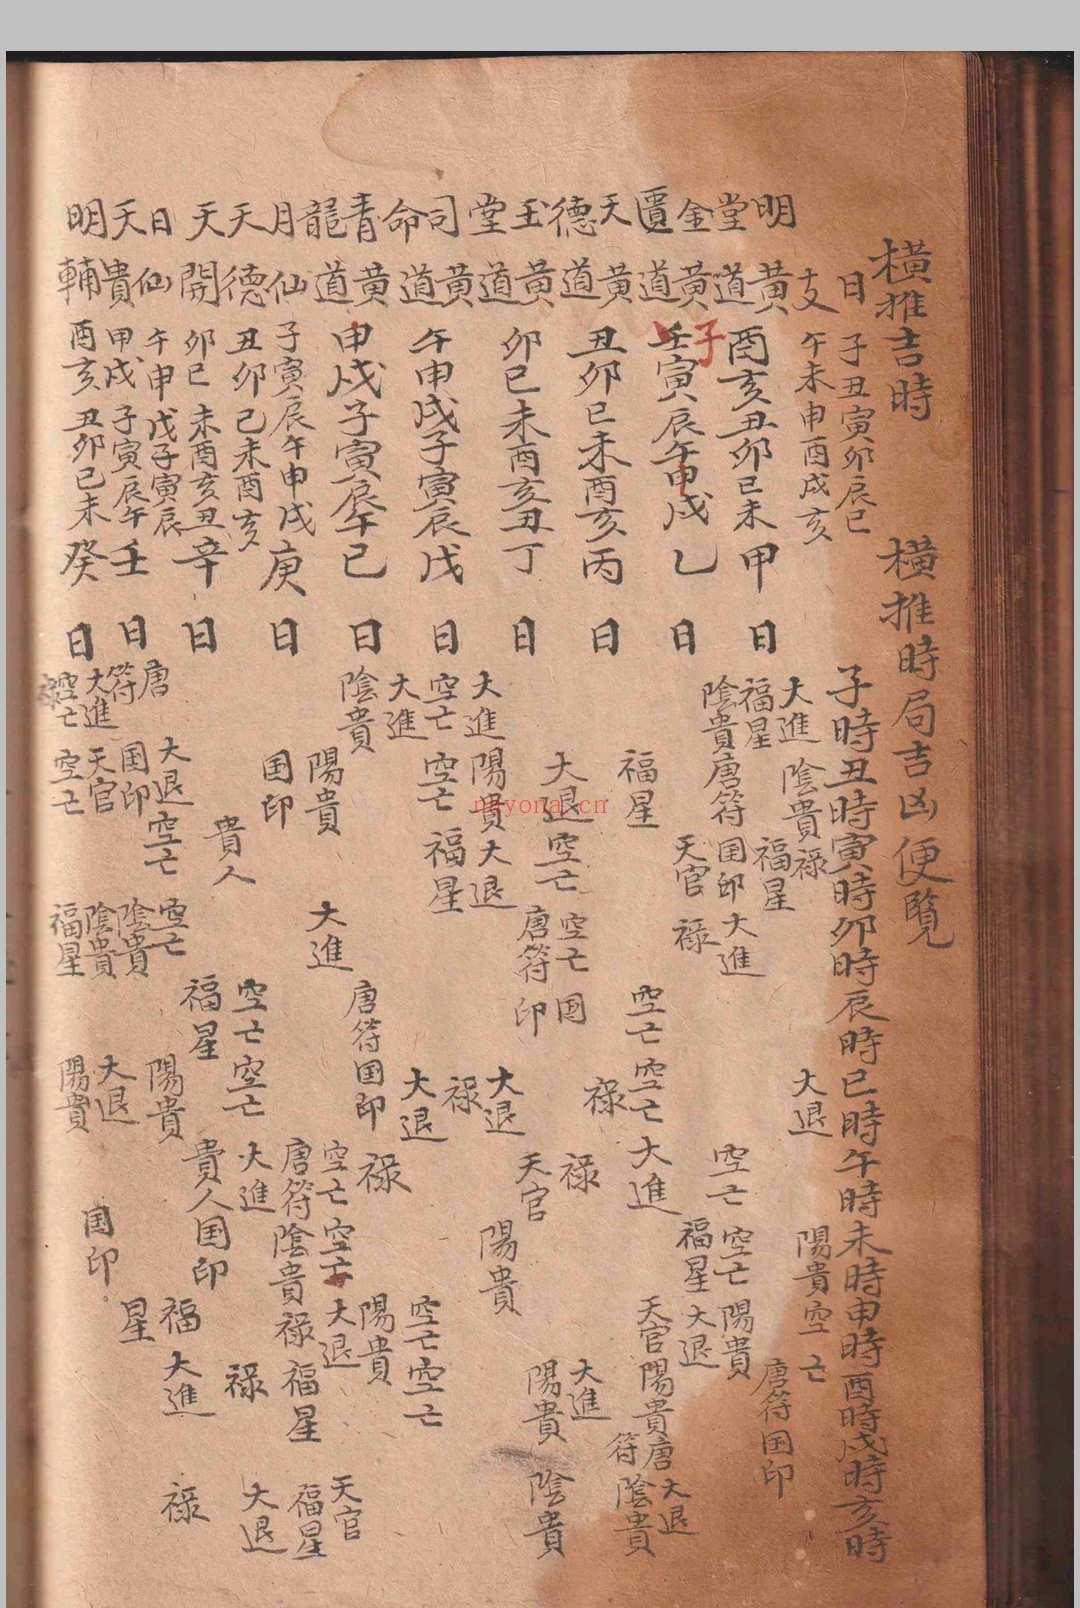 橫推吉時
橫推時局吉凶便覽
日子丑寅卯辰巳
支午未申酉戌亥
子時丑時寅時卯時辰時巳時午時未時申時酉時戌時亥時
明堂黃道酉亥丑卯巳未
甲日
大進 陰貴祿 大退 陽貴空亡
福星 福星 唐符国印
金匱黃道子寅辰午申戌
乙日
陰貴唐符国印大進 空亡空亡陽貴
天官祿 福星大退
天德黃道丑卯巳未酉亥
丙日
福星 空亡空亡大進 天官陽貴唐符陰貴大退
玉堂黃道卯巳未酉亥丑
丁日
大退空亡空亡国印 祿祿 大進
唐符 天官 陽貴陰貴
司命黃道午申戌子寅辰
戊日
大進陽貴大退 大退 陽貴
空亡空亡福星 祿 空亡空亡
青龍黃道申戌子寅辰午
已日
大進 大退
陰貴 唐符国印祿 陽貴
月仙子寅辰午申戌
庚日
陽貴 大進 空亡空亡大退 天官
国印 唐符陰貴祿福星福星
天德丑卯巳未酉亥
天開卯巳未酉亥丑
辛日
貴人 空亡空亡大進 祿 大退
福星 貴人国印
日仙午申戌子寅辰
天貴甲戌子寅辰午
壬日
唐符 大退空亡空亡 陽貴 福星大進 祿
国印 陰貴
明輔酉亥丑卯巳未
癸日
大進天官陰貴 大退 国印
空亡空亡福星 陽貴
nayona.cn